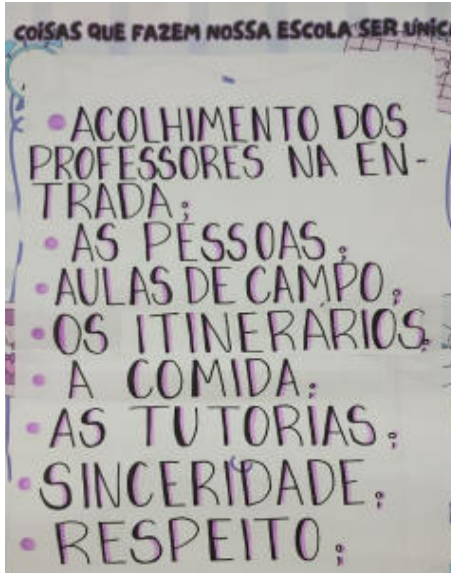 COISAS QUE FAZEM NOSSA ESCOLA SER ÚNIC
• ACOLHIMENTO DOS
PROFESSORES NA EN-
TRADA;
• AS PESSOAS;
• AULAS DE CAMPO;
• OS ITINERÁRIOS;
• A COMIDA;
• AS TUTORIAS;
• SINCERIDADE;
• RESPEITO;